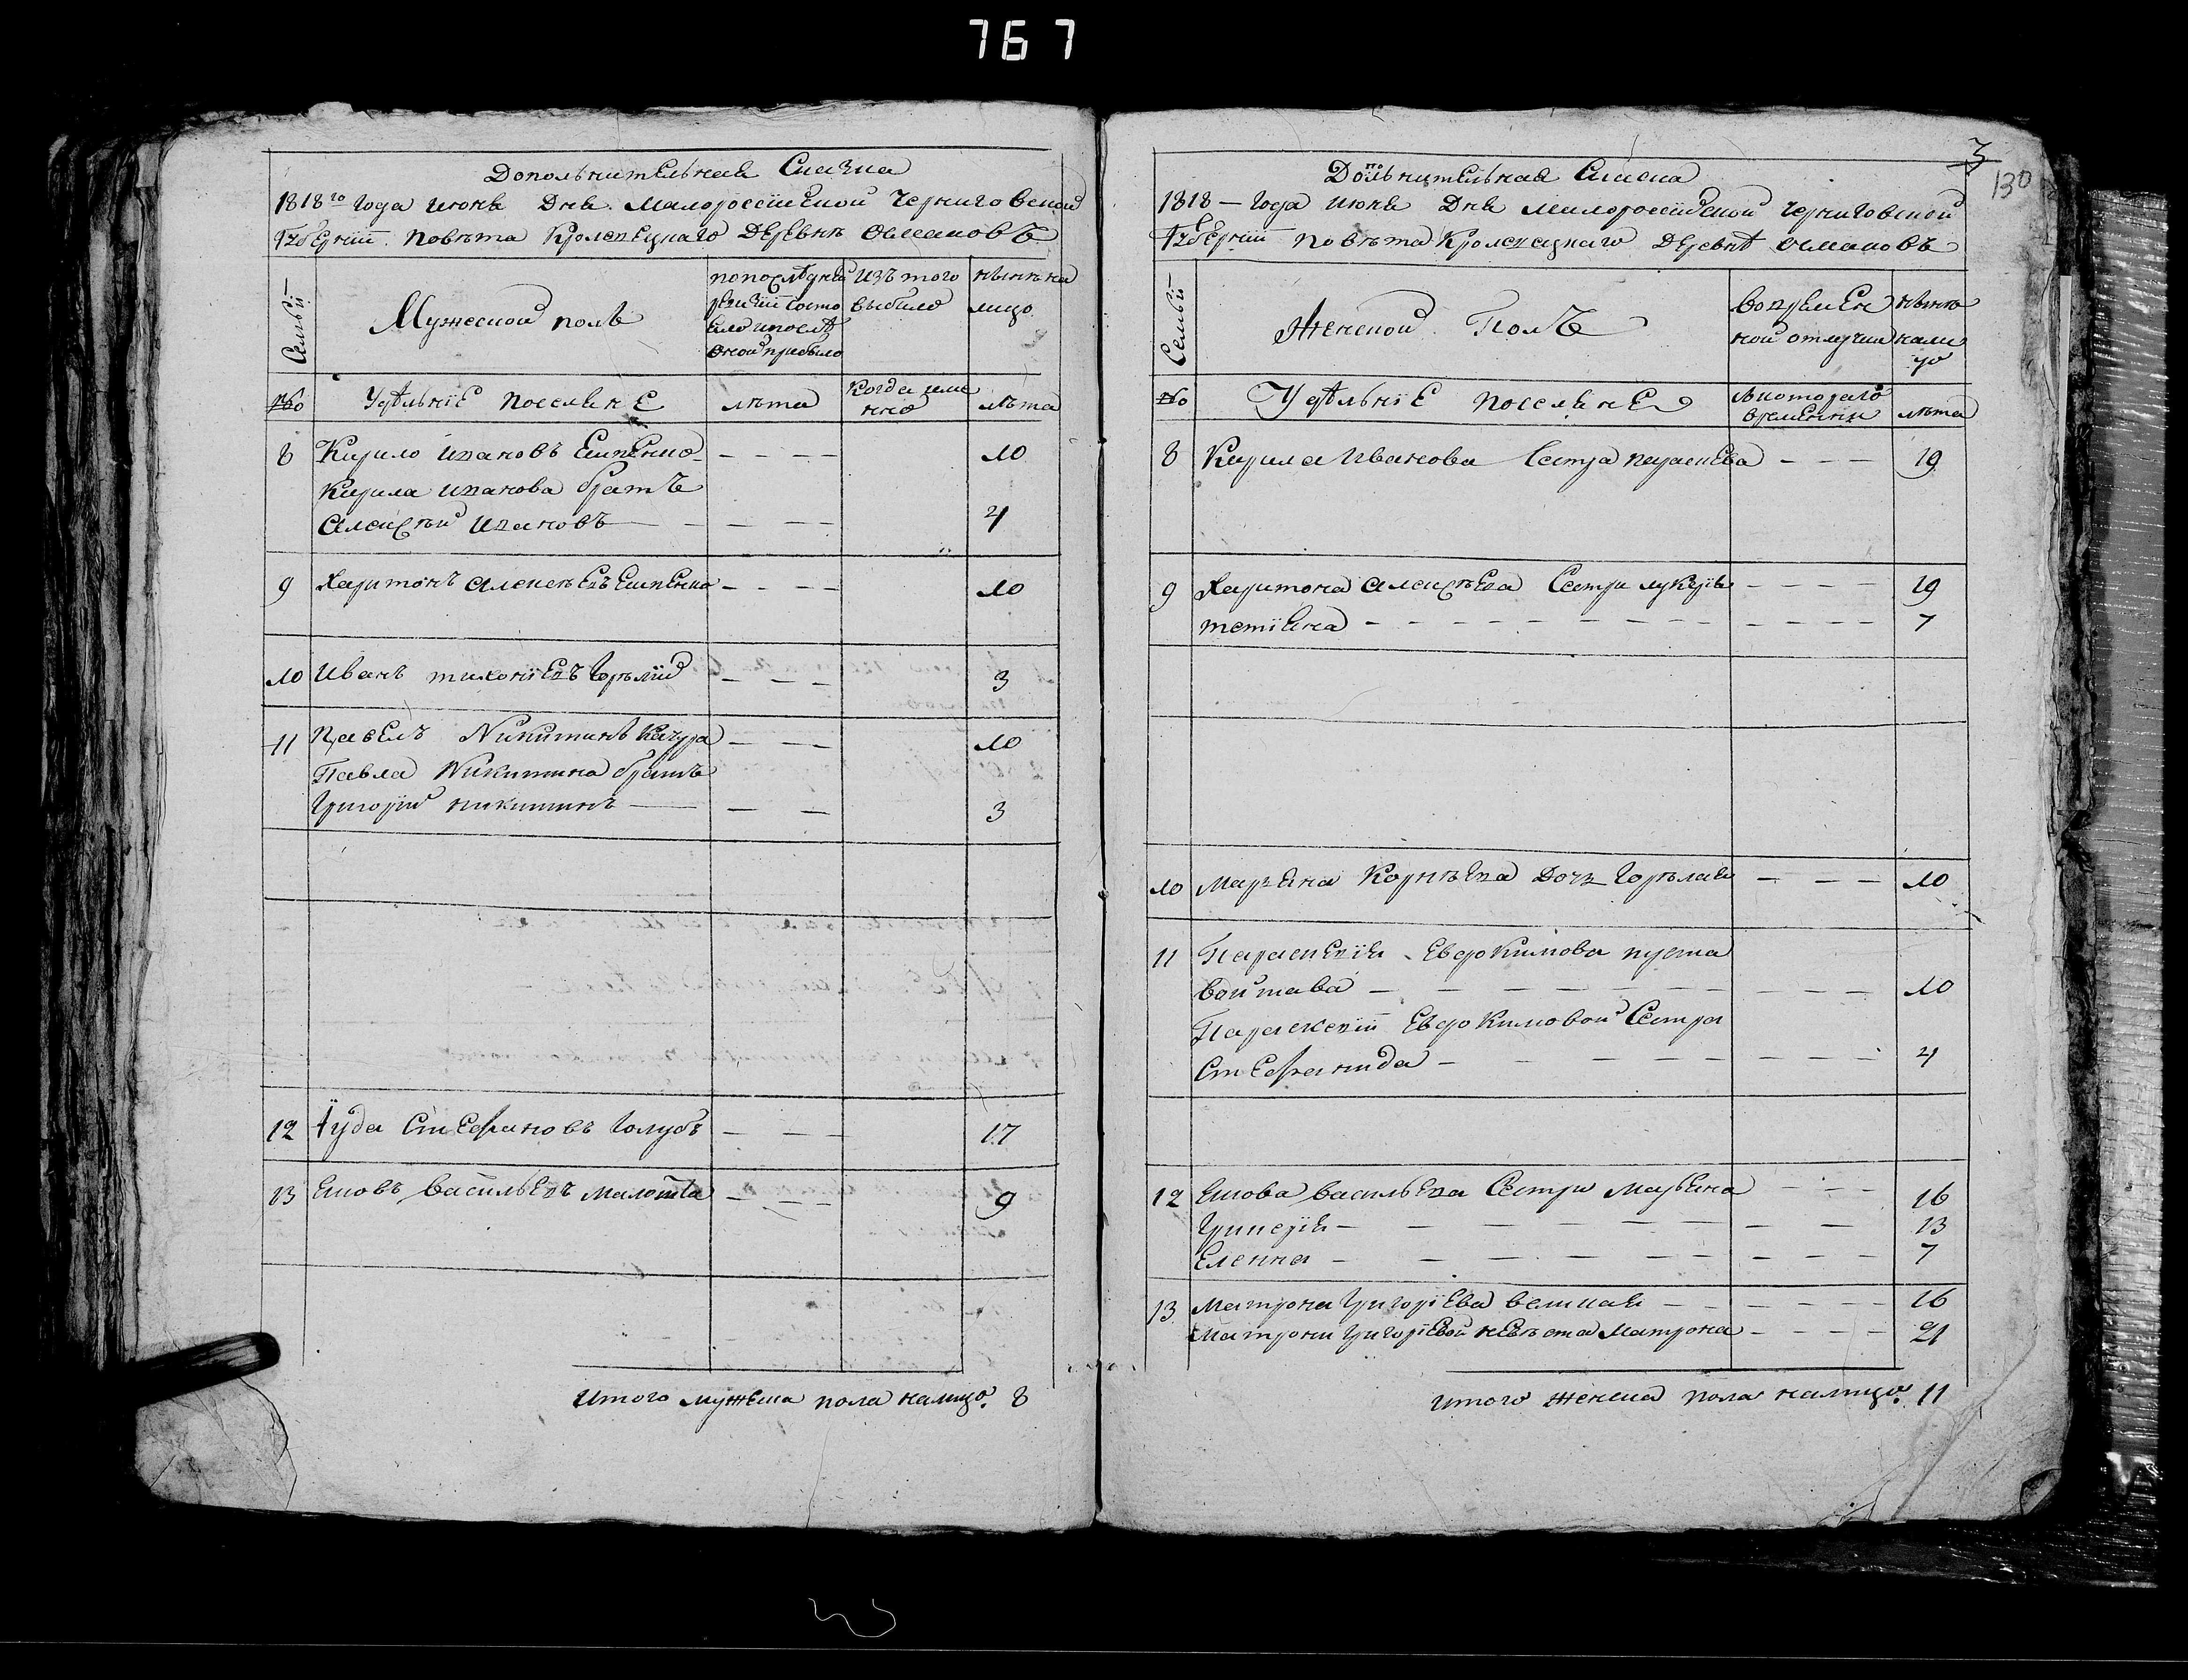 767
Дополънителная Сказка
1818го Года июня Дня Малоросiйской Черниговской
Губернiи Повѣта Кролевецкаго Деревнѣ Османовъ
Семьи
Мужеской полъ
попослѣдней ревизiи состо яло ипослѣ оной прибыло
Изъ того выбыло
нынѣ на лицо
№
Удѣльнiе поселяне
лѣта
Когда име нно
лѣта
8 Кирило ивановъ 10
Кирила иванова братъ
Алексѣй ивановъ 4
9 Харитонъ алексѣевъ 10
10 Иванъ тихонiевъ Горѣлiй 3
11 Павелъ Никитинъ Качура 10
Павла Никитина братъ
Григорiй никитинъ 3
12 Iуда Стефановъ Голубъ 17
13 Яковъ васильевъ малота 9
Итого мужеска пола налицо. 8
3
130
Допольнительная Сказка
1818 – Года июня Дня малоросiйской черниговской
Губернiи повѣта Кролевецкаго Деревнѣ османовъ
Семьи
Женской Полъ
Вовремен ной отлучки
нынѣ нали цо
№
Удѣльнiе поселяне
Скотораго времены
лѣта
8 Кирила Иванова Сестра параскева 19
9 Харитона алексѣева Сестри лукерiя 19
тетiяна 7
10 Маръяна Корнѣева Дочъ Горѣлая 10
11 Параскевiя Евдокимова пуста
войтава 10
Параскевiи Евдокимовой Сестра
Стефанида 4
12 Якова васильева Сестри Маръяна 16
7
Еленна 7
13 Матрона григорiева великая 16
Матрони григорiевой невѣста Матрона 21
итого женска пола налицо. 11